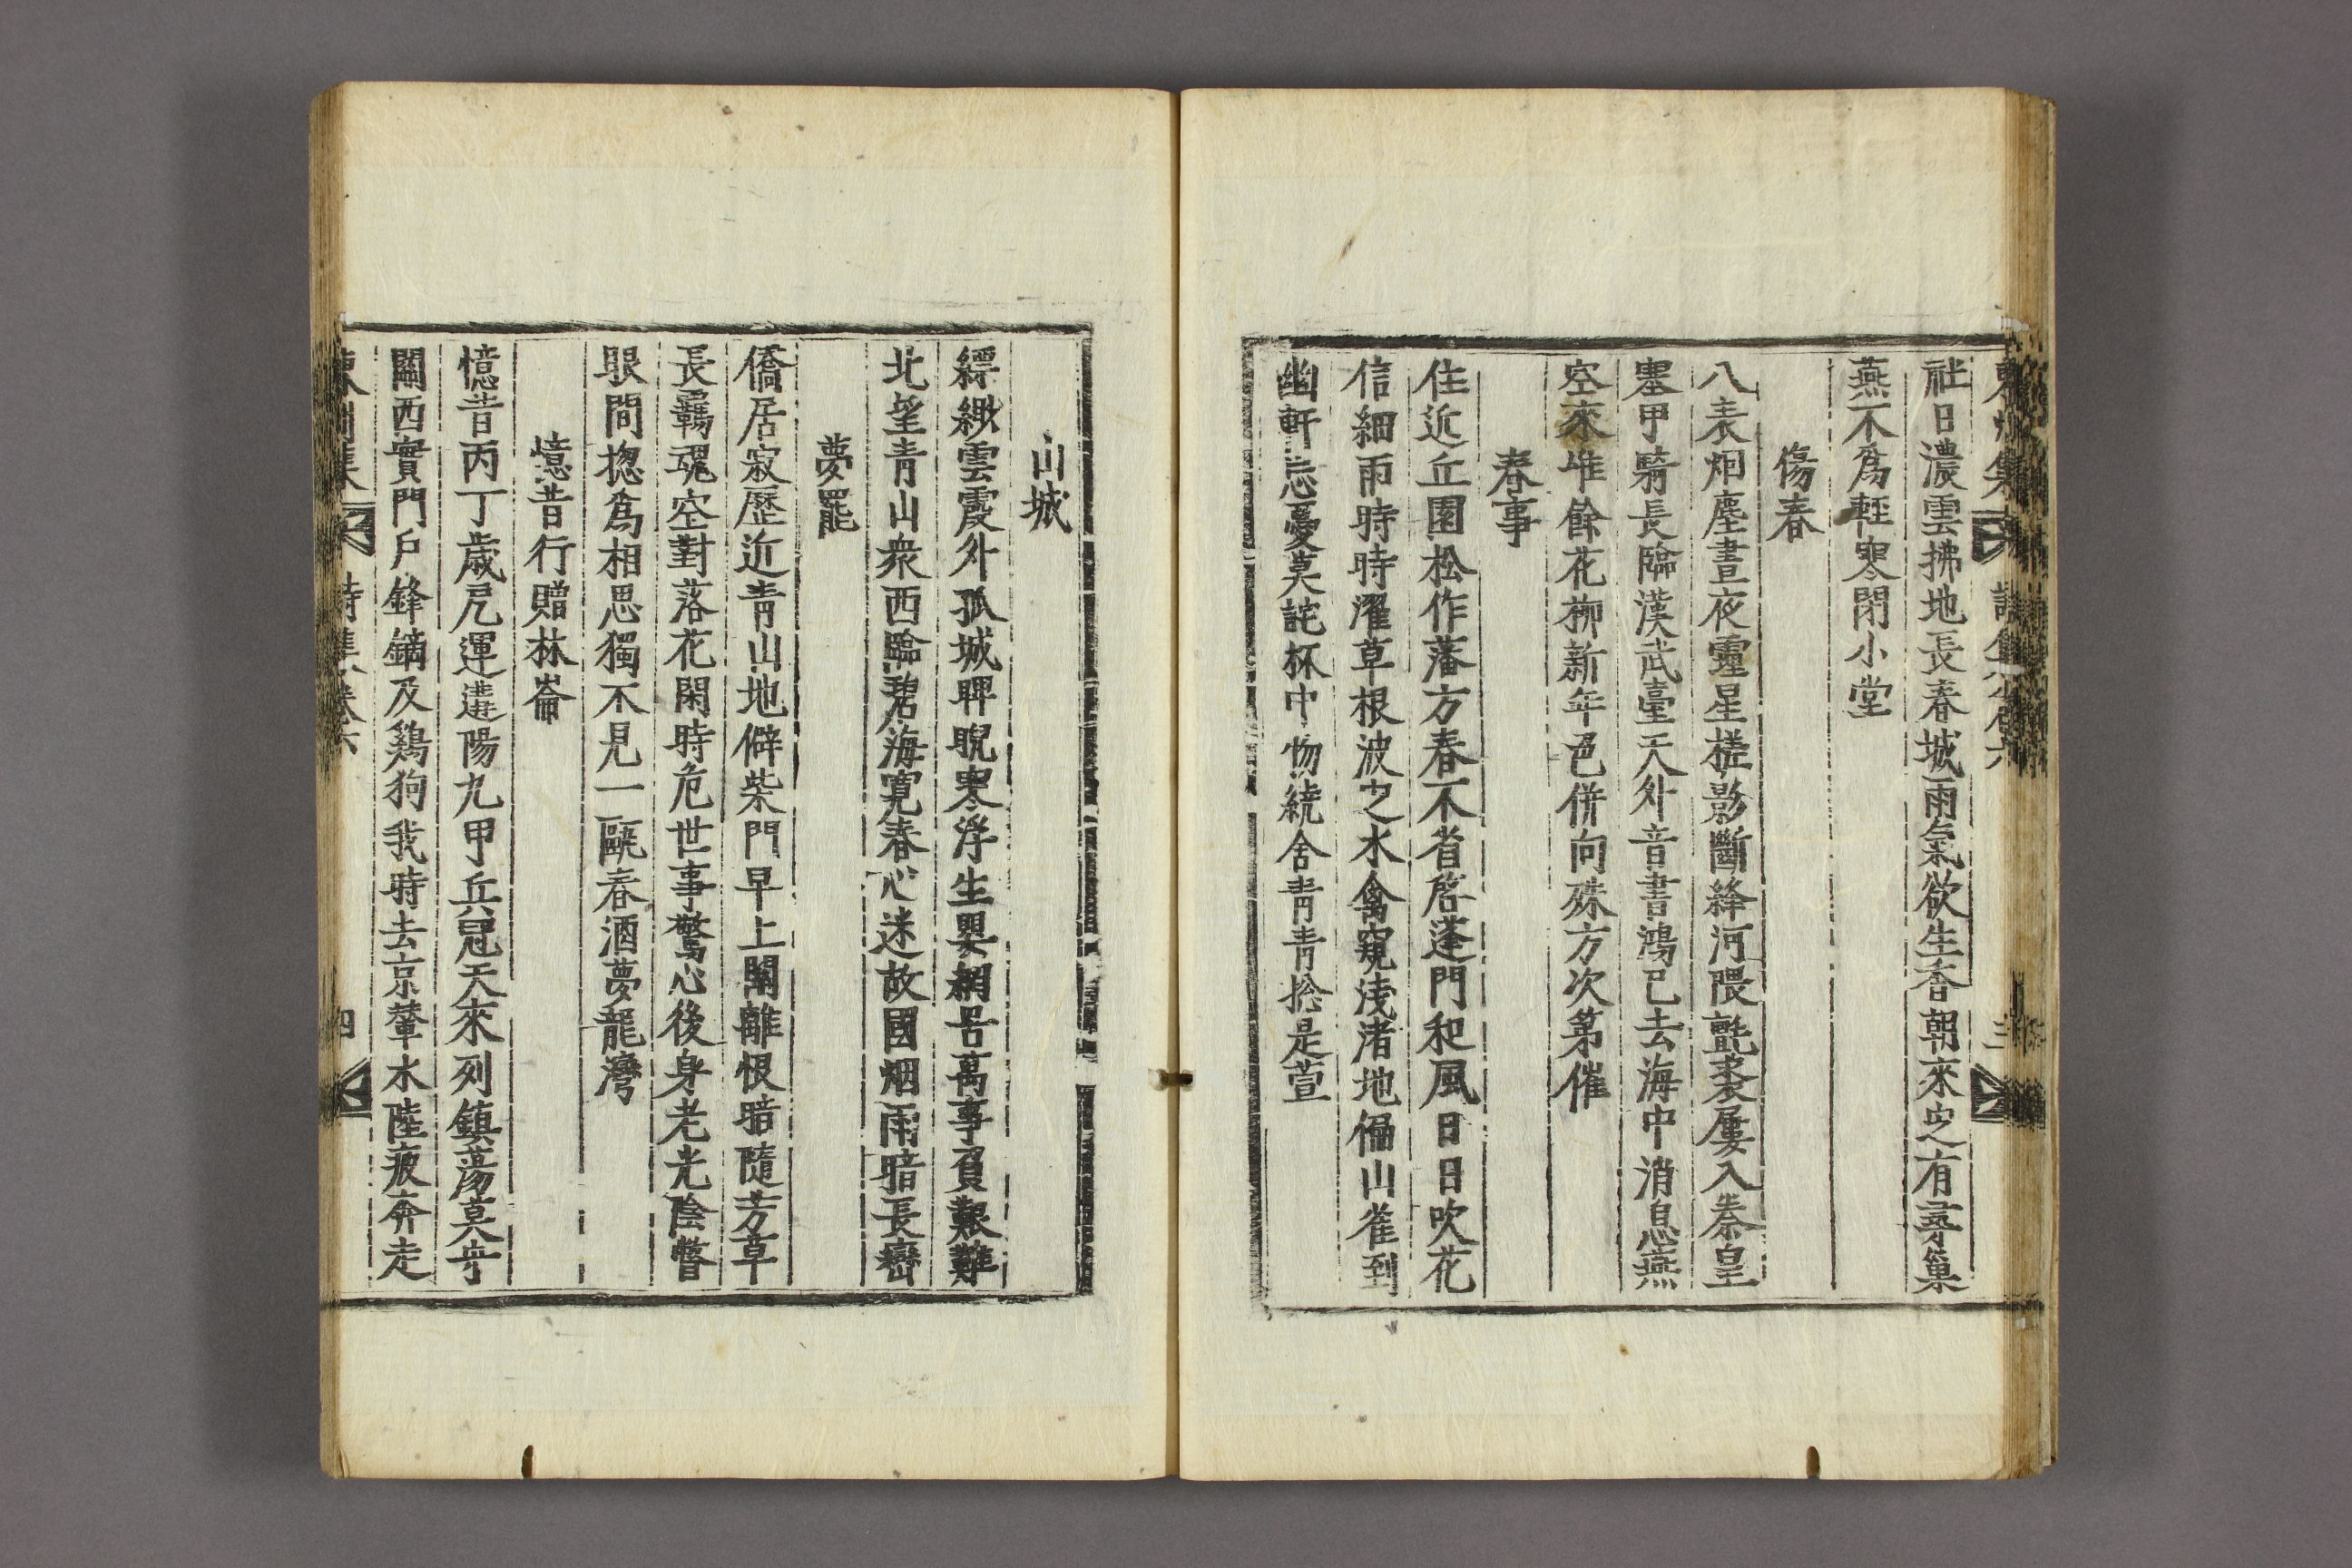 社日濃雲拂地長春城雨氣欲生香朝來定有尋巢
燕不爲輕寒閉小堂
傷春
八表烟塵晝夜霾星槎影斷絳河隈氈裘屢入秦皇
塞甲騎長臨漢武臺天外音書鴻已去海中消息燕
空來唯餘花柳新年色併向殊方次第催
春事
住近丘園松作藩方春不省啓蓬門和風日日吹花
信細雨時時濯草根波定水禽窺淺渚地偏山雀到
幽軒忘憂莫詑杯中物繞舍靑靑摠是萱
山城
縹緲雲霞外孤城睥睨寒浮生嬰網罟萬事負艱難
北望靑山衆西臨碧海寬春心迷故國烟雨暗長巒
夢罷
僑居寂歷近靑山地僻柴門早上關離恨暗隨芳草
長羇魂空對落花閑時危世事驚心後身老光陰瞥
眼間摠爲相思獨不見一甌春酒夢龍灣
憶昔行贈林崙
憶昔丙丁歲厄運遘陽九甲兵冠天來列鎭蕩莫守
關西實門戶鋒鏑及鷄狗我時去京輦水陸疲奔走
詩集卷六
四